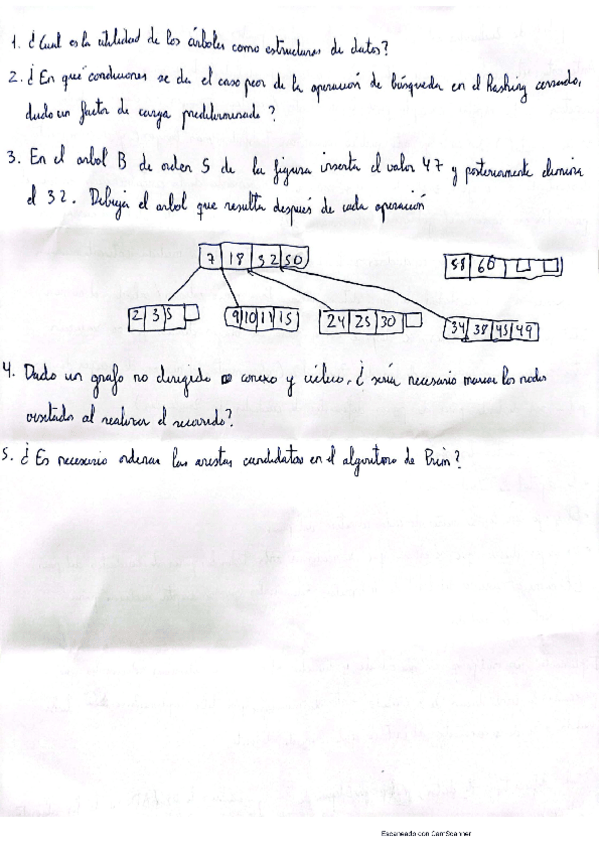 1. ¿Cual es la utilidad de los árboles como estructuras de datos?
2. ¿En qué condiciones se da el caso peor de la operación de búsqueda en el Hashing cerrado,
dado un factor de carga predeterminado?
3. En el arbol B de orden 5 de la figura inserta el valor 47 y posteriormente elimina
el 32. Dibuja el arbol que resulta después de cada operación
7 18 32 50
58 60
2 3 5
9 10 11 15
24 25 30
34 38 45 49
4. Dado un grafo no dirigido conexo y cíclico, ¿sería necesario marcar los nodos
visitados al realizar el recorrido?
5. ¿Es necesario ordenar las aristas candidatas en el algoritmo de Prim?
Escaneado con CamScanner